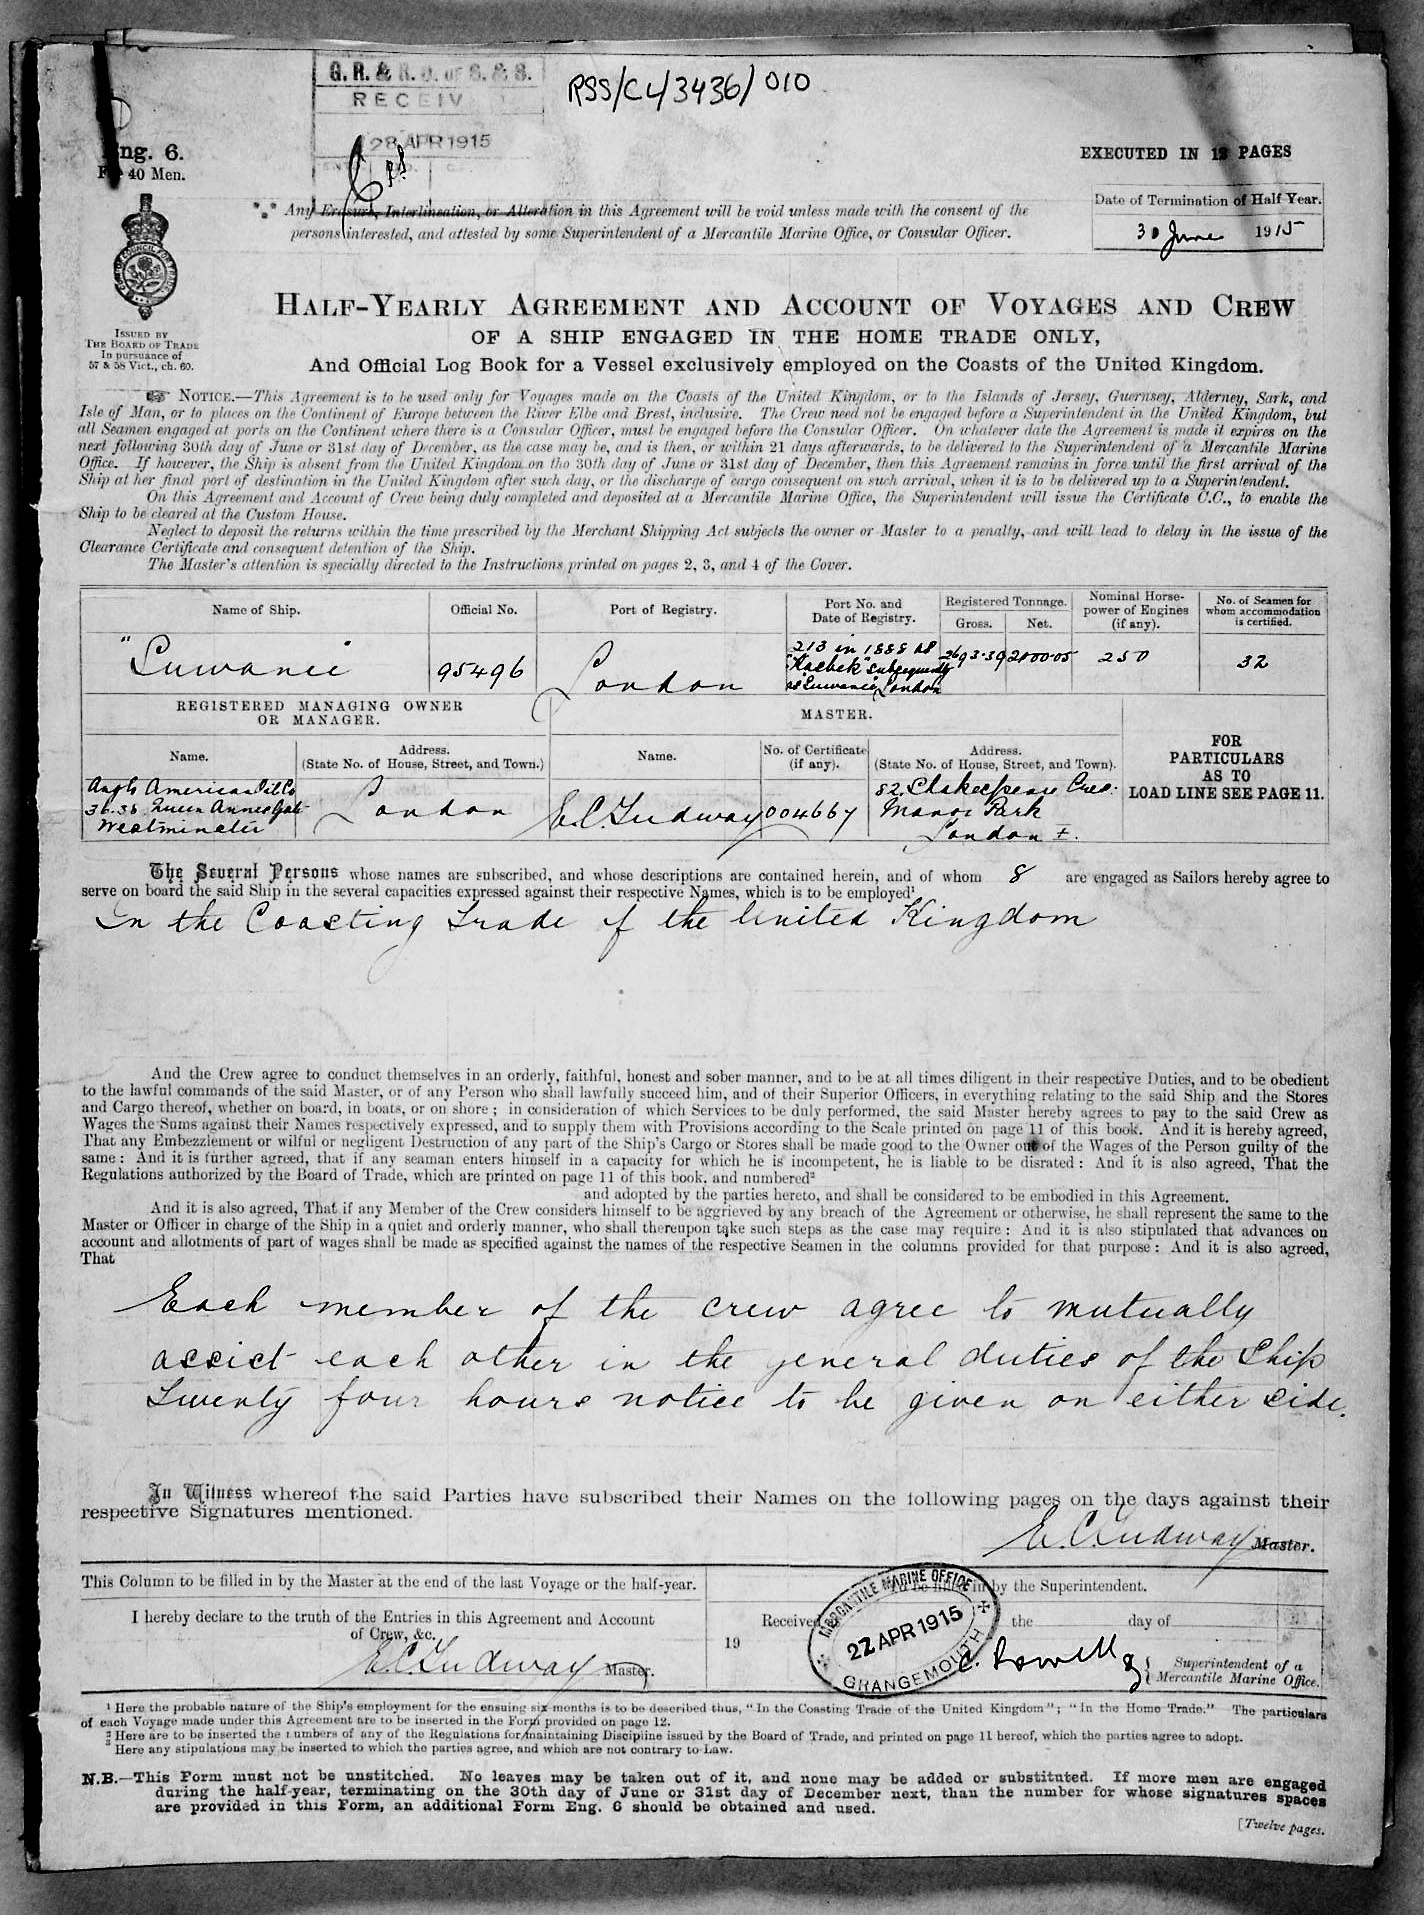 G. R. & R. O. OF S. & S.
RSS/CL/3436/010
RECEIV
28 APR 1915
Eng. 6.
For 40 Men.
EXECUTED IN 12 PAGES
Date of Termination of Half Year.
30 June 1915
*** Any Erasure, Interlineation, or Alteration in this Agreement will be void unless made with the consent of the
persons interested, and attested by some Superintendent of a Mercantile Marine Office, or Consular Officer.
ISSUED BY
THE BOARD OF TRADE
In pursuance of
57 & 58 Vict., ch. 60.
HALF-YEARLY AGREEMENT AND ACCOUNT OF VOYAGES AND CREW
OF A SHIP ENGAGED IN THE HOME TRADE ONLY,
And Official Log Book for a Vessel exclusively employed on the Coasts of the United Kingdom.
☞ NOTICE.—This Agreement is to be used only for Voyages made on the Coasts of the United Kingdom, or to the Islands of Jersey, Guernsey, Alderney, Sark, and
Isle of Man, or to places on the Continent of Europe between the River Elbe and Brest, inclusive. The Crew need not be engaged before a Superintendent in the United Kingdom, but
all Seamen engaged at ports on the Continent where there is a Consular Officer, must be engaged before the Consular Officer. On whatever date the Agreement is made it expires on the
next following 30th day of June or 31st day of December, as the case may be, and is then, or within 21 days afterwards, to be delivered to the Superintendent of a Mercantile Marine
Office. If however, the Ship is absent from the United Kingdom on the 30th day of June or 31st day of December, then this Agreement remains in force until the first arrival of the
Ship at her final port of destination in the United Kingdom after such day, or the discharge of cargo consequent on such arrival, when it is to be delivered up to a Superintendent.
On this Agreement and Account of Crew being duly completed and deposited at a Mercantile Marine Office, the Superintendent will issue the Certificate C.C., to enable the
Ship to be cleared at the Custom House.
Neglect to deposit the returns within the time prescribed by the Merchant Shipping Act subjects the owner or Master to a penalty, and will lead to delay in the issue of the
Clearance Certificate and consequent detention of the Ship.
The Master's attention is specially directed to the Instructions printed on pages 2, 3, and 4 of the Cover.
Name of Ship.
Official No.
Port of Registry.
Port No. and
Date of Registry.
Registered Tonnage.
Gross.
Net.
Nominal Horse-
power of Engines
(if any).
No. of Seamen for
whom accommodation
is certified.
"Suwanee"
95496
London
213 in 1888 as
"Kasbek" subsequently
as "Suwanee" London
2693·39
2000·05
250
32
REGISTERED MANAGING OWNER
OR MANAGER.
MASTER.
Name.
Address.
(State No. of House, Street, and Town.)
Name.
No. of Certificate
(if any).
Address.
(State No. of House, Street, and Town).
FOR
PARTICULARS
AS TO
LOAD LINE SEE PAGE 11.
Anglo American Oil Co
36·38 Queen Annes Gate
Westminster
London
E.C. Tudway
004667
82. Shakespeare Cres.
Manor Park
London E.
The Several Persons whose names are subscribed, and whose descriptions are contained herein, and of whom 8 are engaged as Sailors hereby agree to
serve on board the said Ship in the several capacities expressed against their respective Names, which is to be employed¹
In the Coasting Trade of the United Kingdom
And the Crew agree to conduct themselves in an orderly, faithful, honest and sober manner, and to be at all times diligent in their respective Duties, and to be obedient
to the lawful commands of the said Master, or of any Person who shall lawfully succeed him, and of their Superior Officers, in everything relating to the said Ship and the Stores
and Cargo thereof, whether on board, in boats, or on shore; in consideration of which Services to be duly performed, the said Master hereby agrees to pay to the said Crew as
Wages the Sums against their Names respectively expressed, and to supply them with Provisions according to the Scale printed on page 11 of this book. And it is hereby agreed,
That any Embezzlement or wilful or negligent Destruction of any part of the Ship's Cargo or Stores shall be made good to the Owner out of the Wages of the Person guilty of the
same: And it is further agreed, that if any seaman enters himself in a capacity for which he is incompetent, he is liable to be disrated: And it is also agreed, That the
Regulations authorized by the Board of Trade, which are printed on page 11 of this book, and numbered²
and adopted by the parties hereto, and shall be considered to be embodied in this Agreement.
And it is also agreed, That if any Member of the Crew considers himself to be aggrieved by any breach of the Agreement or otherwise, he shall represent the same to the
Master or Officer in charge of the Ship in a quiet and orderly manner, who shall thereupon take such steps as the case may require: And it is also stipulated that advances on
account and allotments of part of wages shall be made as specified against the names of the respective Seamen in the columns provided for that purpose: And it is also agreed,
That
Each member of the crew agree to mutually
assist each other in the general duties of the Ship
Twenty four hours notice to be given on either side.
In Witness whereof the said Parties have subscribed their Names on the following pages on the days against their
respective Signatures mentioned.
E.C. Tudway Master.
This Column to be filled in by the Master at the end of the last Voyage or the half-year.
I hereby declare to the truth of the Entries in this Agreement and Account
of Crew, &c.
E.C. Tudway Master.
To be filled in by the Superintendent.
Received the day of
19
MERCANTILE MARINE OFFICE
22 APR 1915
GRANGEMOUTH
Superintendent of a
Mercantile Marine Office.
¹ Here the probable nature of the Ship's employment for the ensuing six months is to be described thus, "In the Coasting Trade of the United Kingdom"; "In the Home Trade." The particulars
of each Voyage made under this Agreement are to be inserted in the Form provided on page 12.
² Here are to be inserted the numbers of any of the Regulations for maintaining Discipline issued by the Board of Trade, and printed on page 11 hereof, which the parties agree to adopt.
³ Here any stipulations may be inserted to which the parties agree, and which are not contrary to Law.
N.B.—This Form must not be unstitched. No leaves may be taken out of it, and none may be added or substituted. If more men are engaged
during the half-year, terminating on the 30th day of June or 31st day of December next, than the number for whose signatures spaces
are provided in this Form, an additional Form Eng. 6 should be obtained and used.
[Twelve pages.